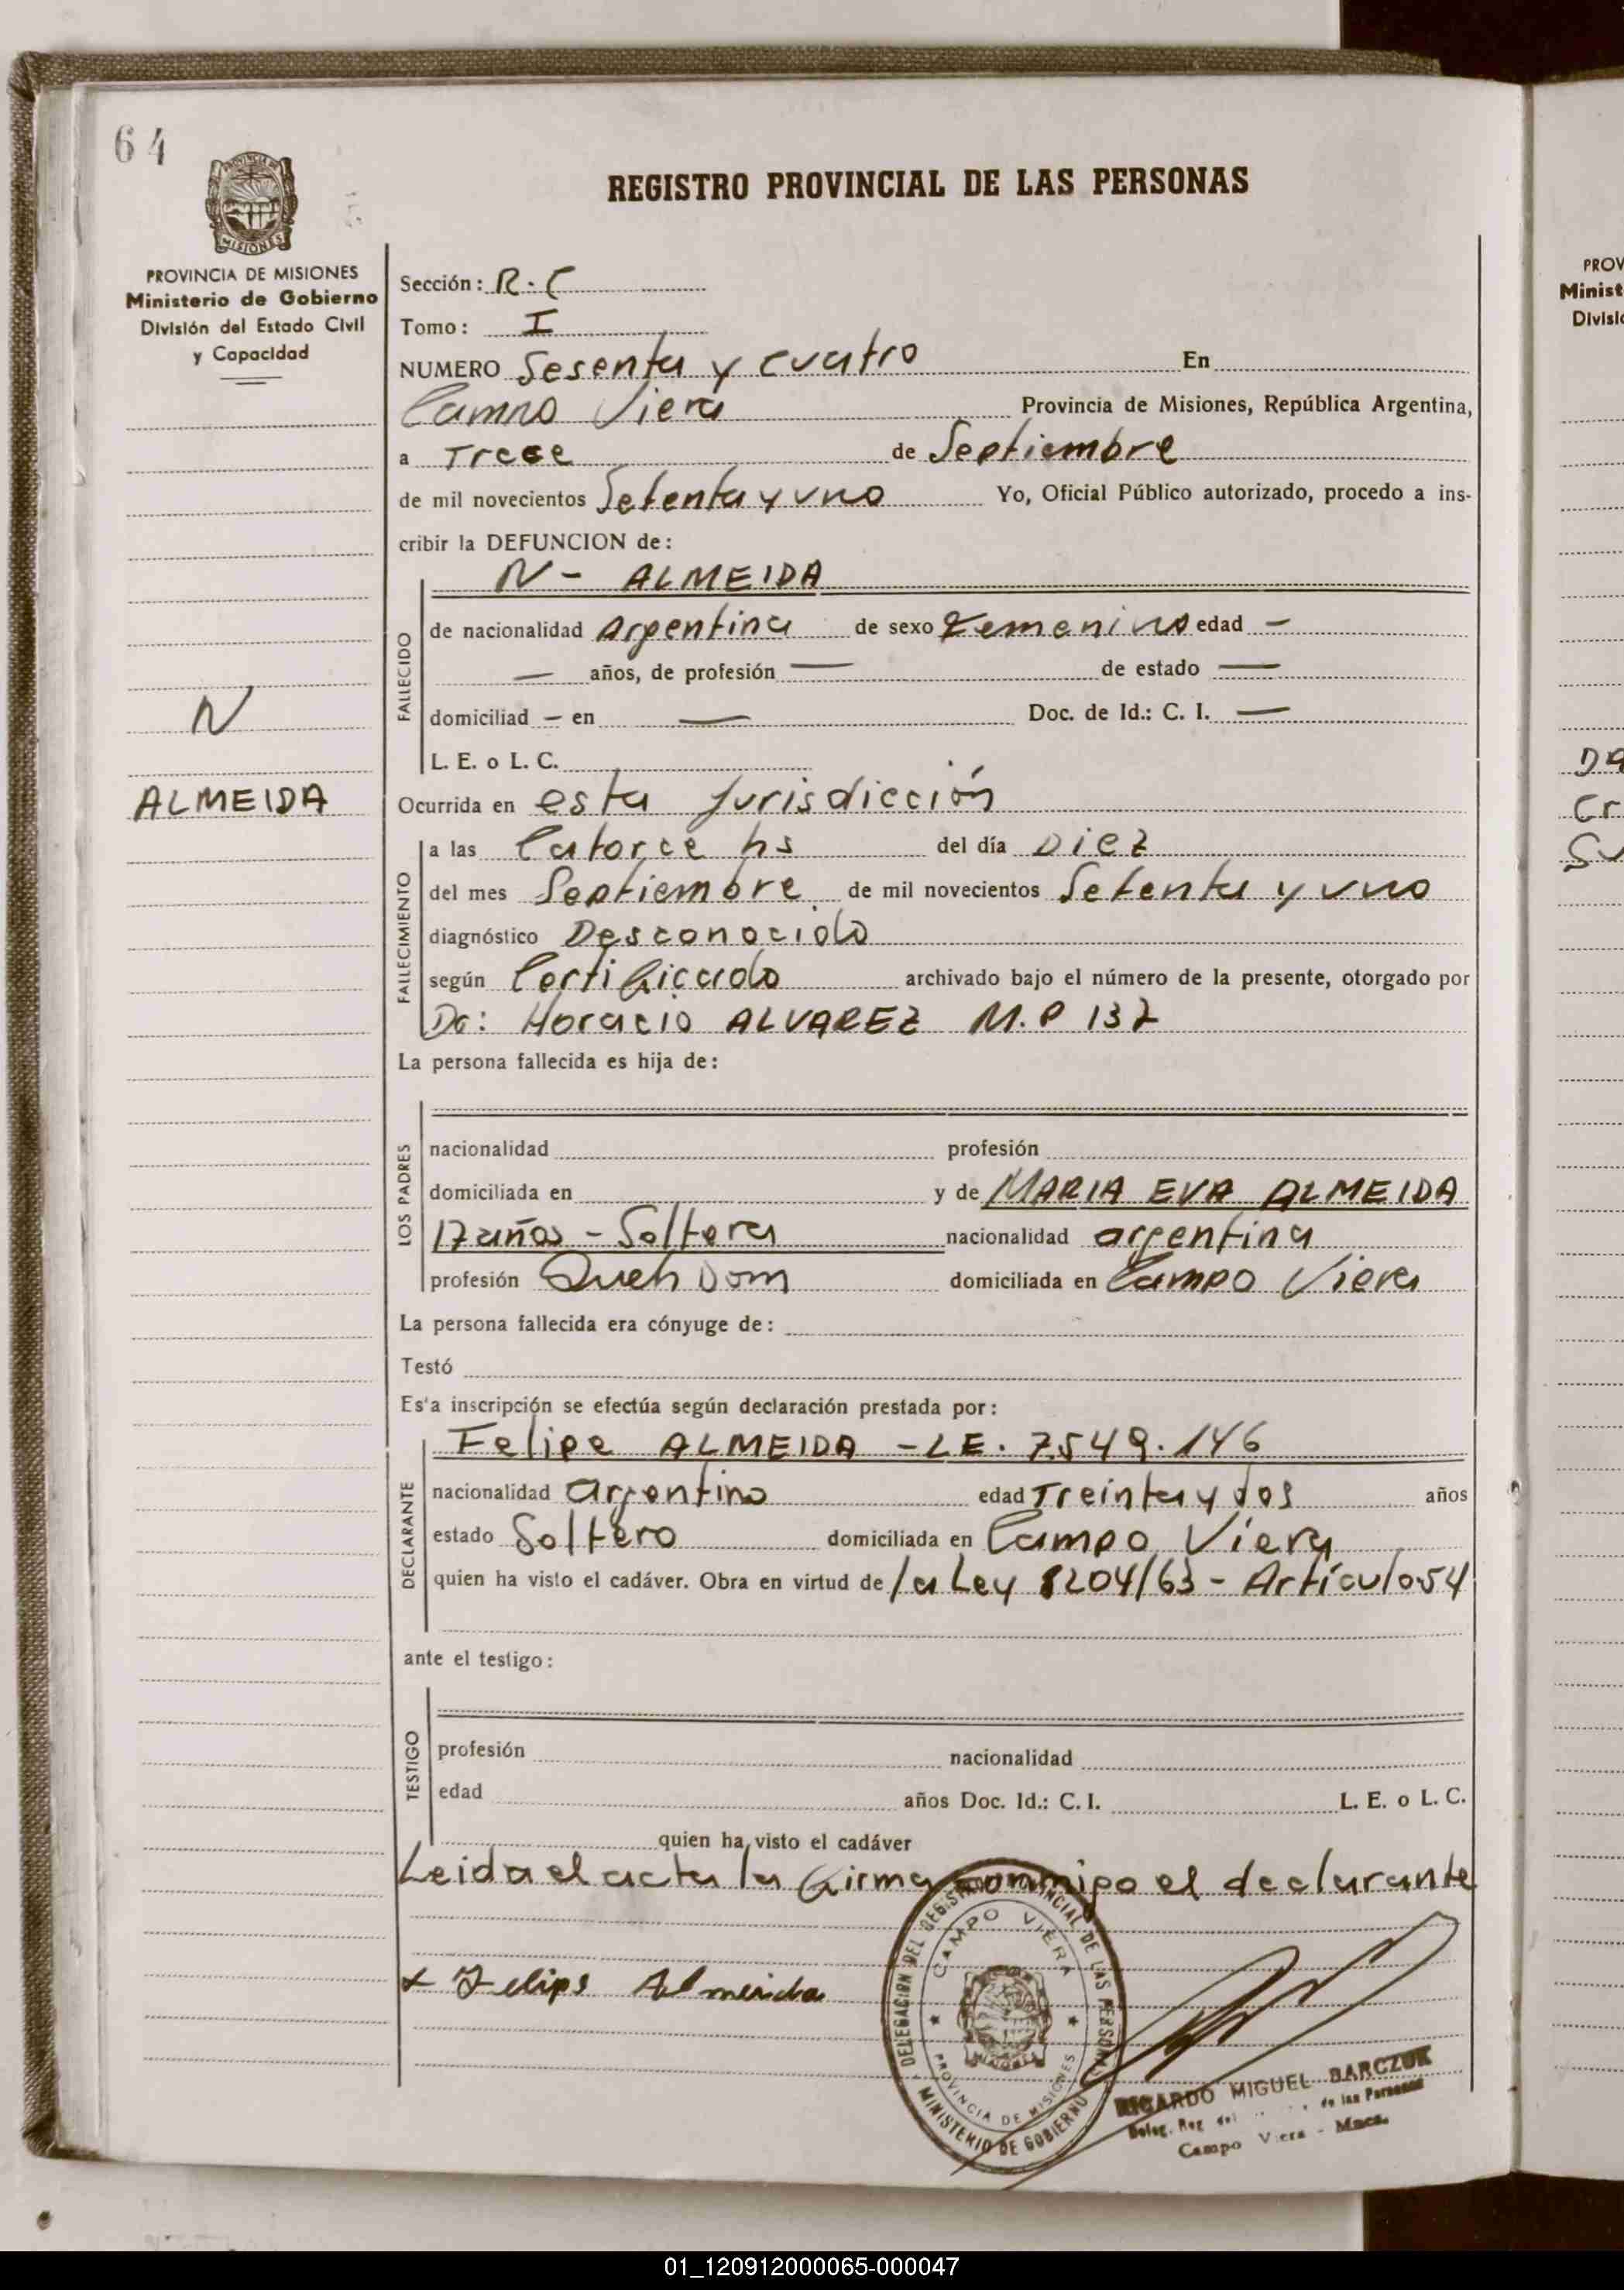 64
PROVINCIA DE MISIONES
Ministerio de Gobierno
División del Estado Civil
y Capacidad
REGISTRO PROVINCIAL DE LAS PERSONAS
Sección: R.C
Tomo: I
NUMERO Sesenta y cuatro En
Campo Viera Provincia de Misiones, República Argentina,
a Trece de Septiembre
de mil novecientos Setenta y uno Yo, Oficial Público autorizado, procedo a ins-
cribir la DEFUNCION de:
N - ALMEIDA
FALLECIDO
de nacionalidad Argentina de sexo Femenino edad -
— años, de profesión — de estado —
N
domiciliad - en — Doc. de Id.: C. I. —
L. E. o L. C.
ALMEIDA
Ocurrida en esta jurisdicción
FALLECIMIENTO
a las Catorce hs del día Diez
del mes Septiembre de mil novecientos Setenta y uno
diagnóstico Desconocido
según Certificado archivado bajo el número de la presente, otorgado por
Dr: Horacio ALVAREZ M.P 137
La persona fallecida es hija de:
LOS PADRES
nacionalidad profesión
domiciliada en y de MARIA EVA ALMEIDA
17 años - Soltera nacionalidad argentina
profesión Queh Dom domiciliada en Campo Viera
La persona fallecida era cónyuge de:
Testó
Es'a inscripción se efectúa según declaración prestada por:
DECLARANTE
Felipe ALMEIDA - LE. 7.549.146
nacionalidad argentino edad Treinta y dos años
estado Soltero domiciliada en Campo Viera
quien ha visto el cadáver. Obra en virtud de la Ley 8204/63 - Artículo 54
ante el testigo:
TESTIGO
profesión nacionalidad
edad años Doc. Id.: C. I. L. E. o L. C.
quien ha visto el cadáver
Leida el acta la firma conmigo el declarante
Felipe Almeida
DELEGACION DEL REGISTRO PROVINCIAL DE LAS PERSONAS
CAMPO VIERA
PROVINCIA DE MISIONES
MINISTERIO DE GOBIERNO
RICARDO MIGUEL BARCZUK
Deleg. Reg. del de las Personas
Campo Viera - Mnes.
PROV
Minist
Divisi
01_120912000065-000047